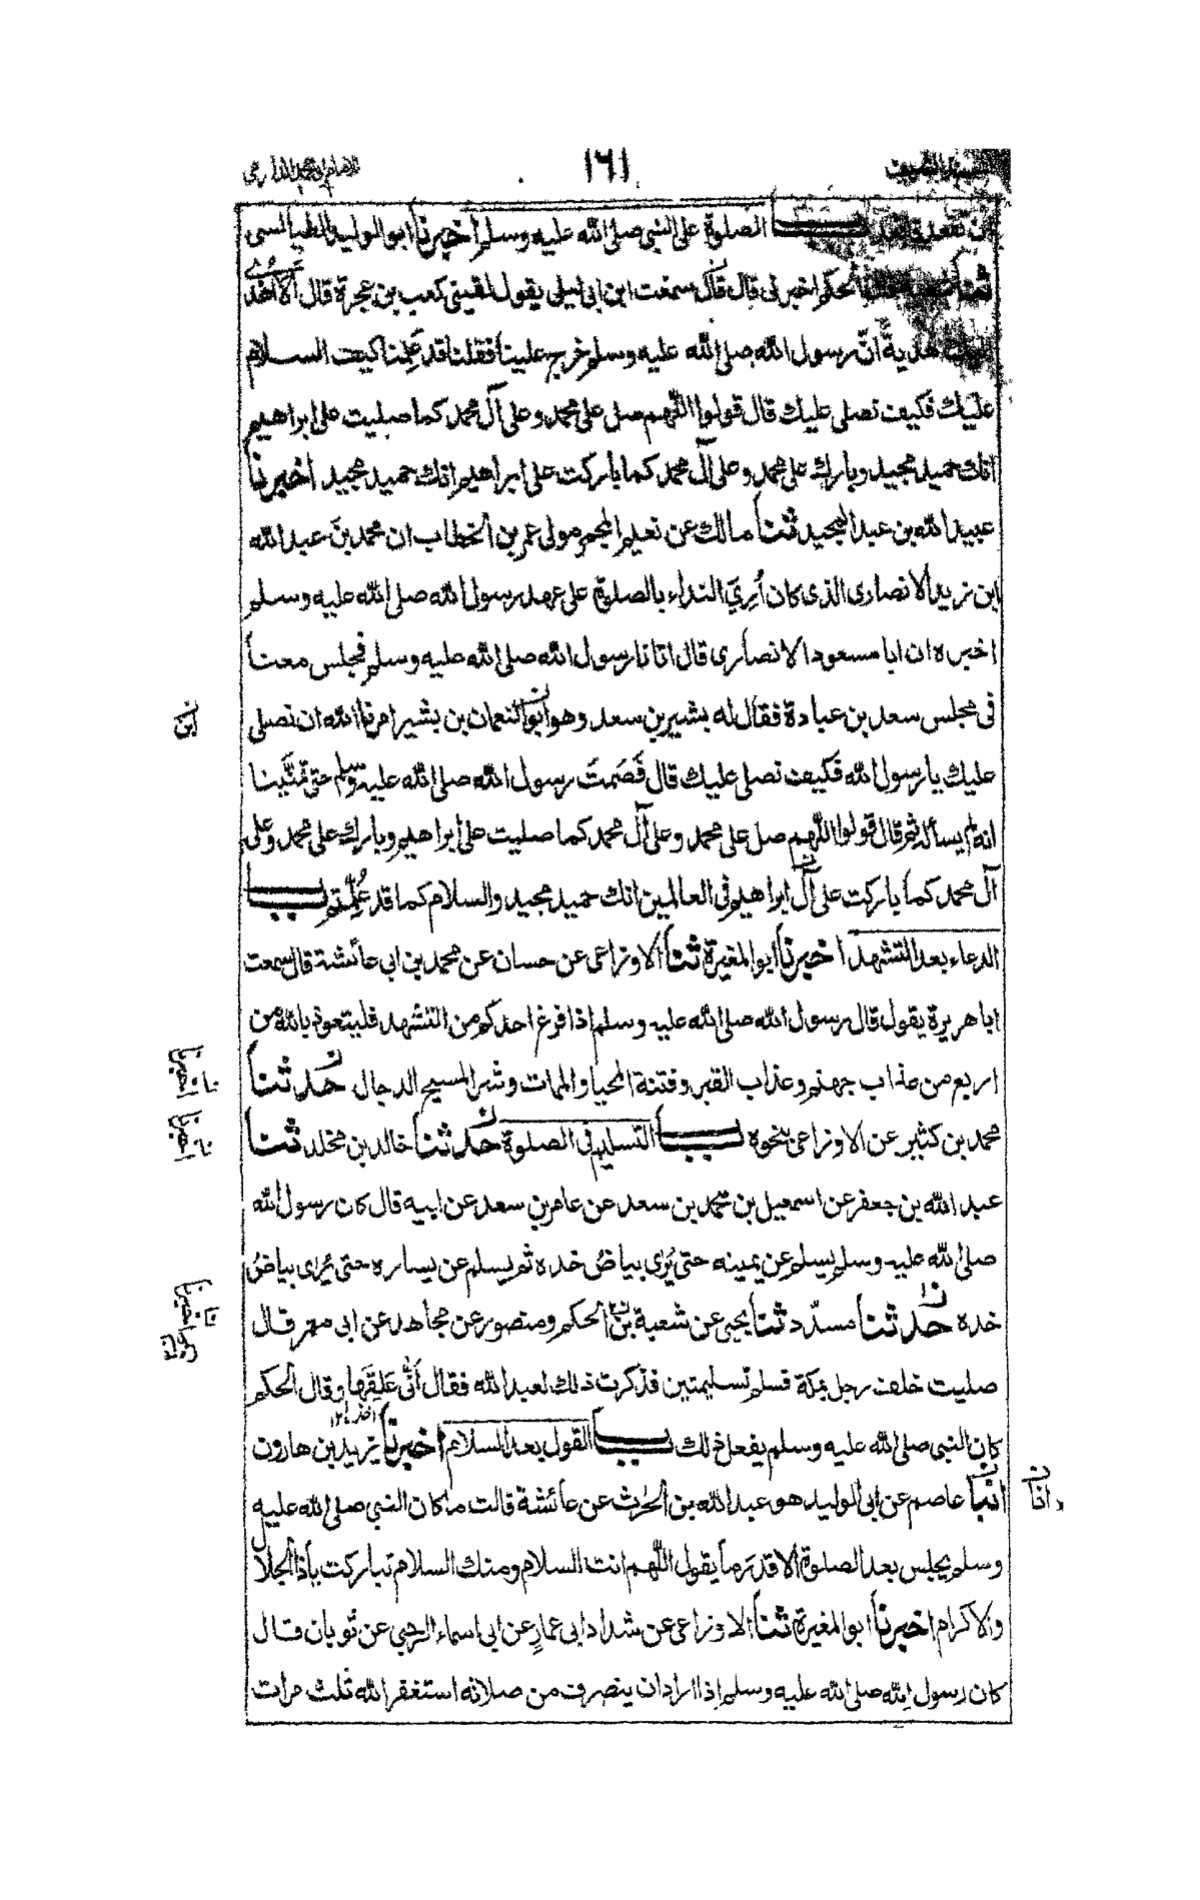 المسند الشريف ١٦١ للامام ابي محمد الدارمي
ان تقعد فاقعد باب الصلوة على النبي صلى الله عليه وسلم اخبرنا ابو الوليد الطيالسي
ثنا الحكم اخبرني قال سمعت ابن ابي ليلى يقول لقيني كعب بن عجرة قال الا اهدى
اليك هدية ان رسول الله صلى الله عليه وسلم خرج علينا فقلنا قد علمنا كيف السلام
عليك فكيف نصلي عليك قال قولوا اللهم صل على محمد وعلى آل محمد كما صليت على ابراهيم
انك حميد مجيد وبارك على محمد وعلى آل محمد كما باركت على ابراهيم انك حميد مجيد اخبرنا
عبيد الله بن عبد المجيد ثنا مالك عن نعيم المجمر مولى عمر بن الخطاب ان محمد بن عبد الله
ابن زيد الانصاري الذي كان أُرِيَ النداء بالصلوة على عهد رسول الله صلى الله عليه وسلم
اخبره ان ابا مسعود الانصاري قال اتانا رسول الله صلى الله عليه وسلم فجلس معنا
في مجلس سعد بن عبادة فقال له بشير بن سعد وهو ابو النعمان بن بشير امرنا الله ان نصلي
ابن
عليك يا رسول الله فكيف نصلي عليك قال فَصَمتَ رسول الله صلى الله عليه وسلم حتى تمنّينا
انه لم يسأله ثم قال قولوا اللهم صل على محمد وعلى آل محمد كما صليت على ابراهيم وبارك على محمد وعلى
آل محمد كما باركت على آل ابراهيم في العالمين انك حميد مجيد والسلام كما قد عُلِّمتم باب
الدعاء بعد التشهد اخبرنا ابو المغيرة ثنا الاوزاعي عن حسان عن محمد بن ابي عائشة قال سمعت
ابا هريرة يقول قال رسول الله صلى الله عليه وسلم اذا فرغ احدكم من التشهد فليتعوذ بالله من
اربع من عذاب جهنم وعذاب القبر وفتنة المحيا والممات وشر المسيح الدجال حدثنا
اخبرنا
محمد بن كثير عن الاوزاعي بنحوه باب التسليم في الصلوة حدثنا خالد بن مخلد ثنا
اخبرنا
عبد الله بن جعفر عن اسمعيل بن محمد بن سعد عن عامر بن سعد عن ابيه قال كان رسول الله
صلى الله عليه وسلم يسلم عن يمينه حتى يُرى بياضُ خده ثم يسلم عن يساره حتى يُرى بياضُ
خده حدثنا مسدّد ثنا يحيى عن شعبة بن الحكم ومنصور عن مجاهد عن ابي معمر قال
اخبرنا
صليت خلف رجل بمكة فسلم تسليمتين فذكرت ذلك لعبد الله فقال أنّى عَلِقَها وقال الحكم
كان النبي صلى الله عليه وسلم يفعل ذلك باب القول بعد السلام اخبرنا يزيد بن هارون
انبا عاصم عن ابي الوليد هو عبد الله بن الحرث عن عائشة قالت ما كان النبي صلى الله عليه
وسلم يجلس بعد الصلوة الا قدر ما يقول اللهم انت السلام ومنك السلام تباركت يا ذا الجلال
والاكرام اخبرنا ابو المغيرة ثنا الاوزاعي عن شداد ابي عمارٍ عن ابي اسماء الرحبي عن ثوبان قال
كان رسول الله صلى الله عليه وسلم اذا اراد ان ينصرف من صلاته استغفر الله ثلث مرات